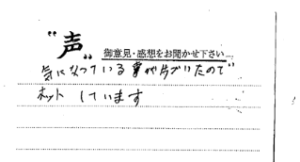 "声" 御意見・感想をお聞かせ下さい
気になっている事が片ずいたので
ホット しています